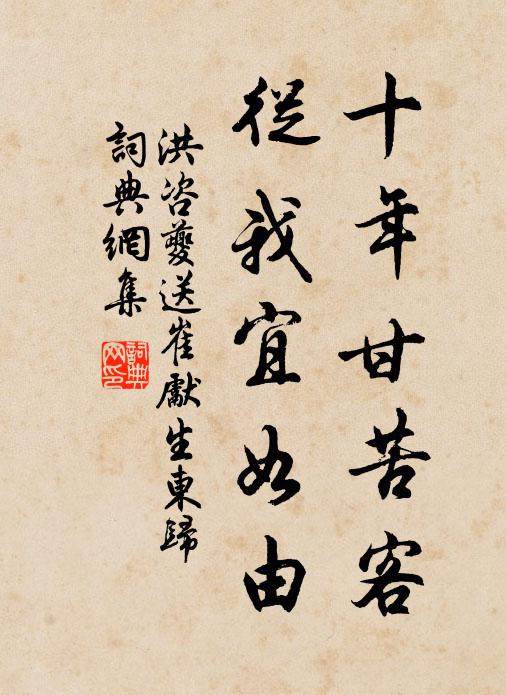 十年甘苦客
從我宜如由
洪咨夔送崔獻生東歸
詞典網集
詞典网印